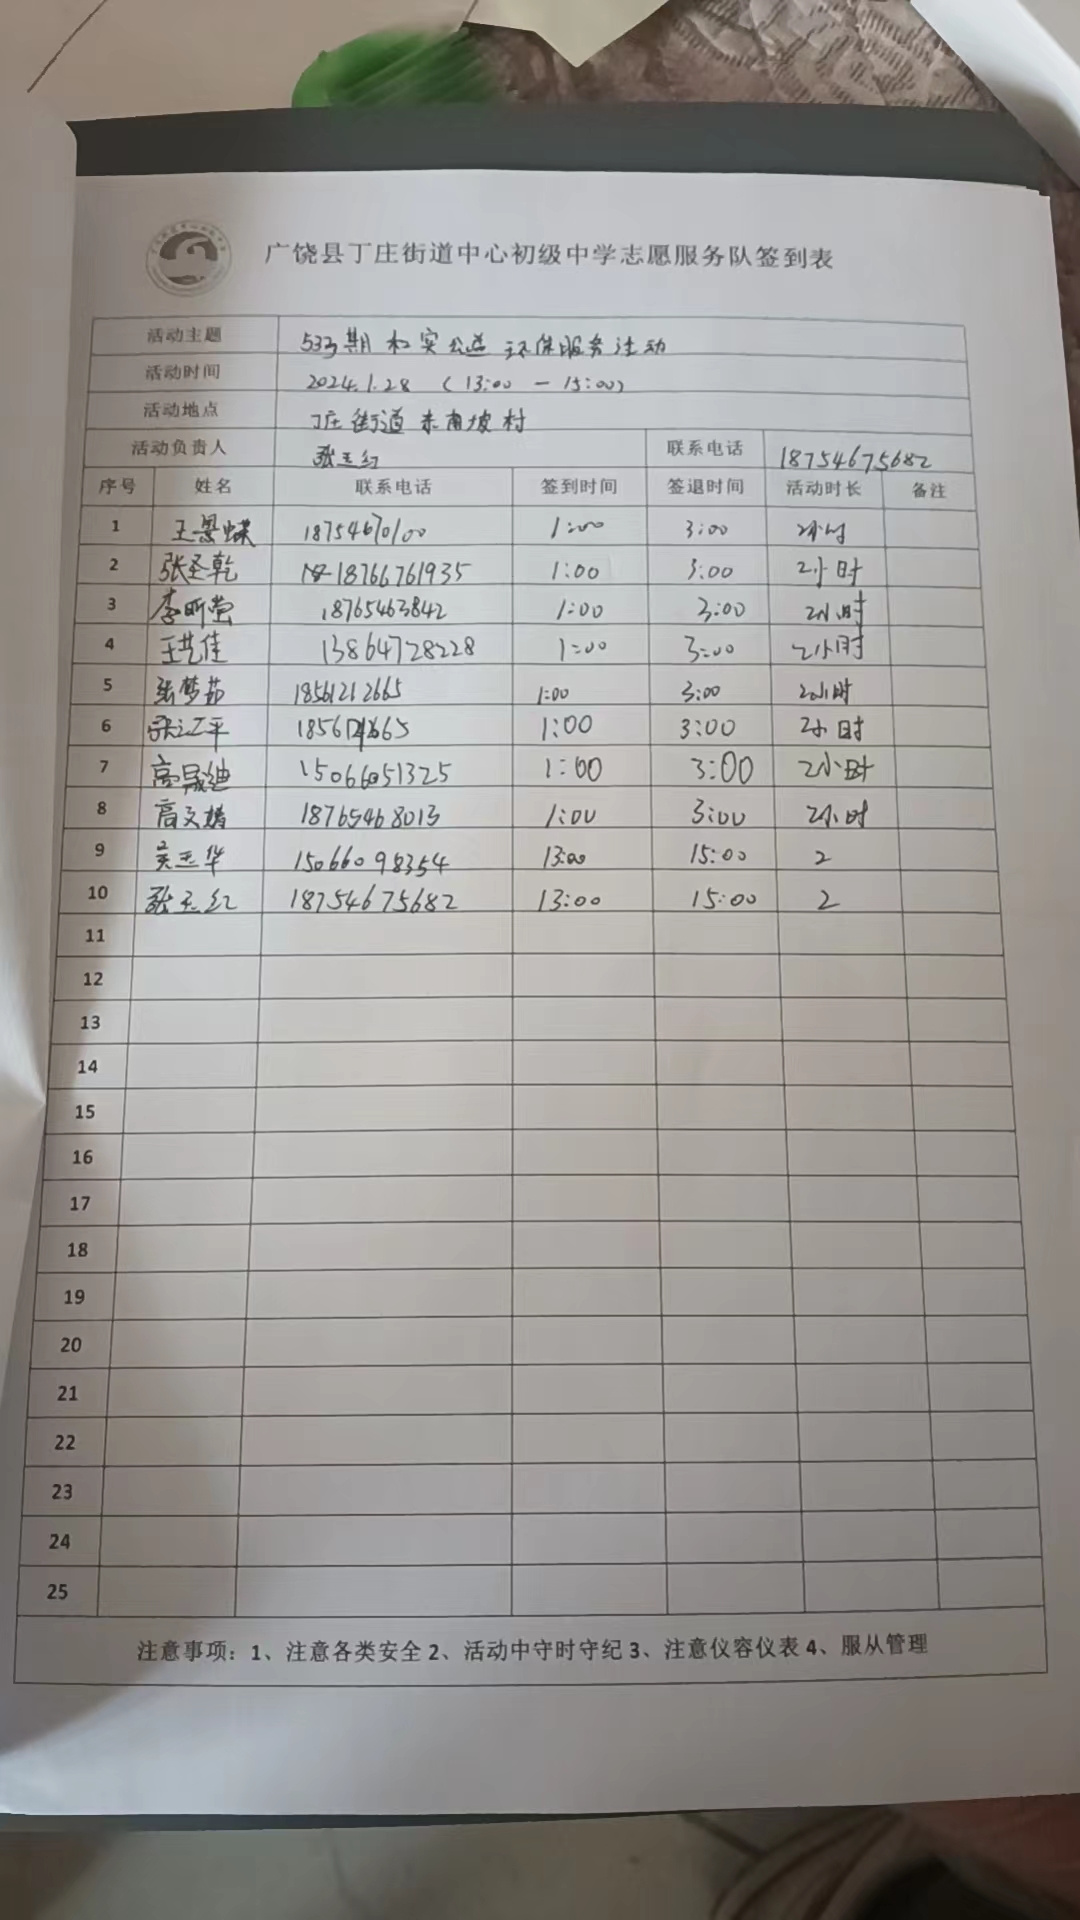 广饶县丁庄街道中心初级中学志愿服务队签到表
活动主题 533期 公益 环保服务活动
活动时间 2024.1.28 (13:00 — 15:00)
活动地点 丁庄街道 东南坡村
活动负责人 张玉红 联系电话 18754675682
序号 姓名 联系电话 签到时间 签退时间 活动时长 备注
1 王景蝶 18754670100 1:00 3:00 2小时
2 张圣乾 18766761935 1:00 3:00 2小时
3 李昕莹 18765463842 1:00 3:00 2小时
4 王艺佳 13864728228 1:00 3:00 2小时
5 张梦茹 18561212665 1:00 3:00 2小时
6 平 1:00 3:00 2小时
7 高晟迪 15066051325 1:00 3:00 2小时
8 高文婧 18765468013 1:00 3:00 2小时
9 吴玉华 15066098354 13:00 15:00 2
10 张玉红 18754675682 13:00 15:00 2
11
12
13
14
15
16
17
18
19
20
21
22
23
24
25
注意事项：1、注意各类安全 2、活动中守时守纪 3、注意仪容仪表 4、服从管理